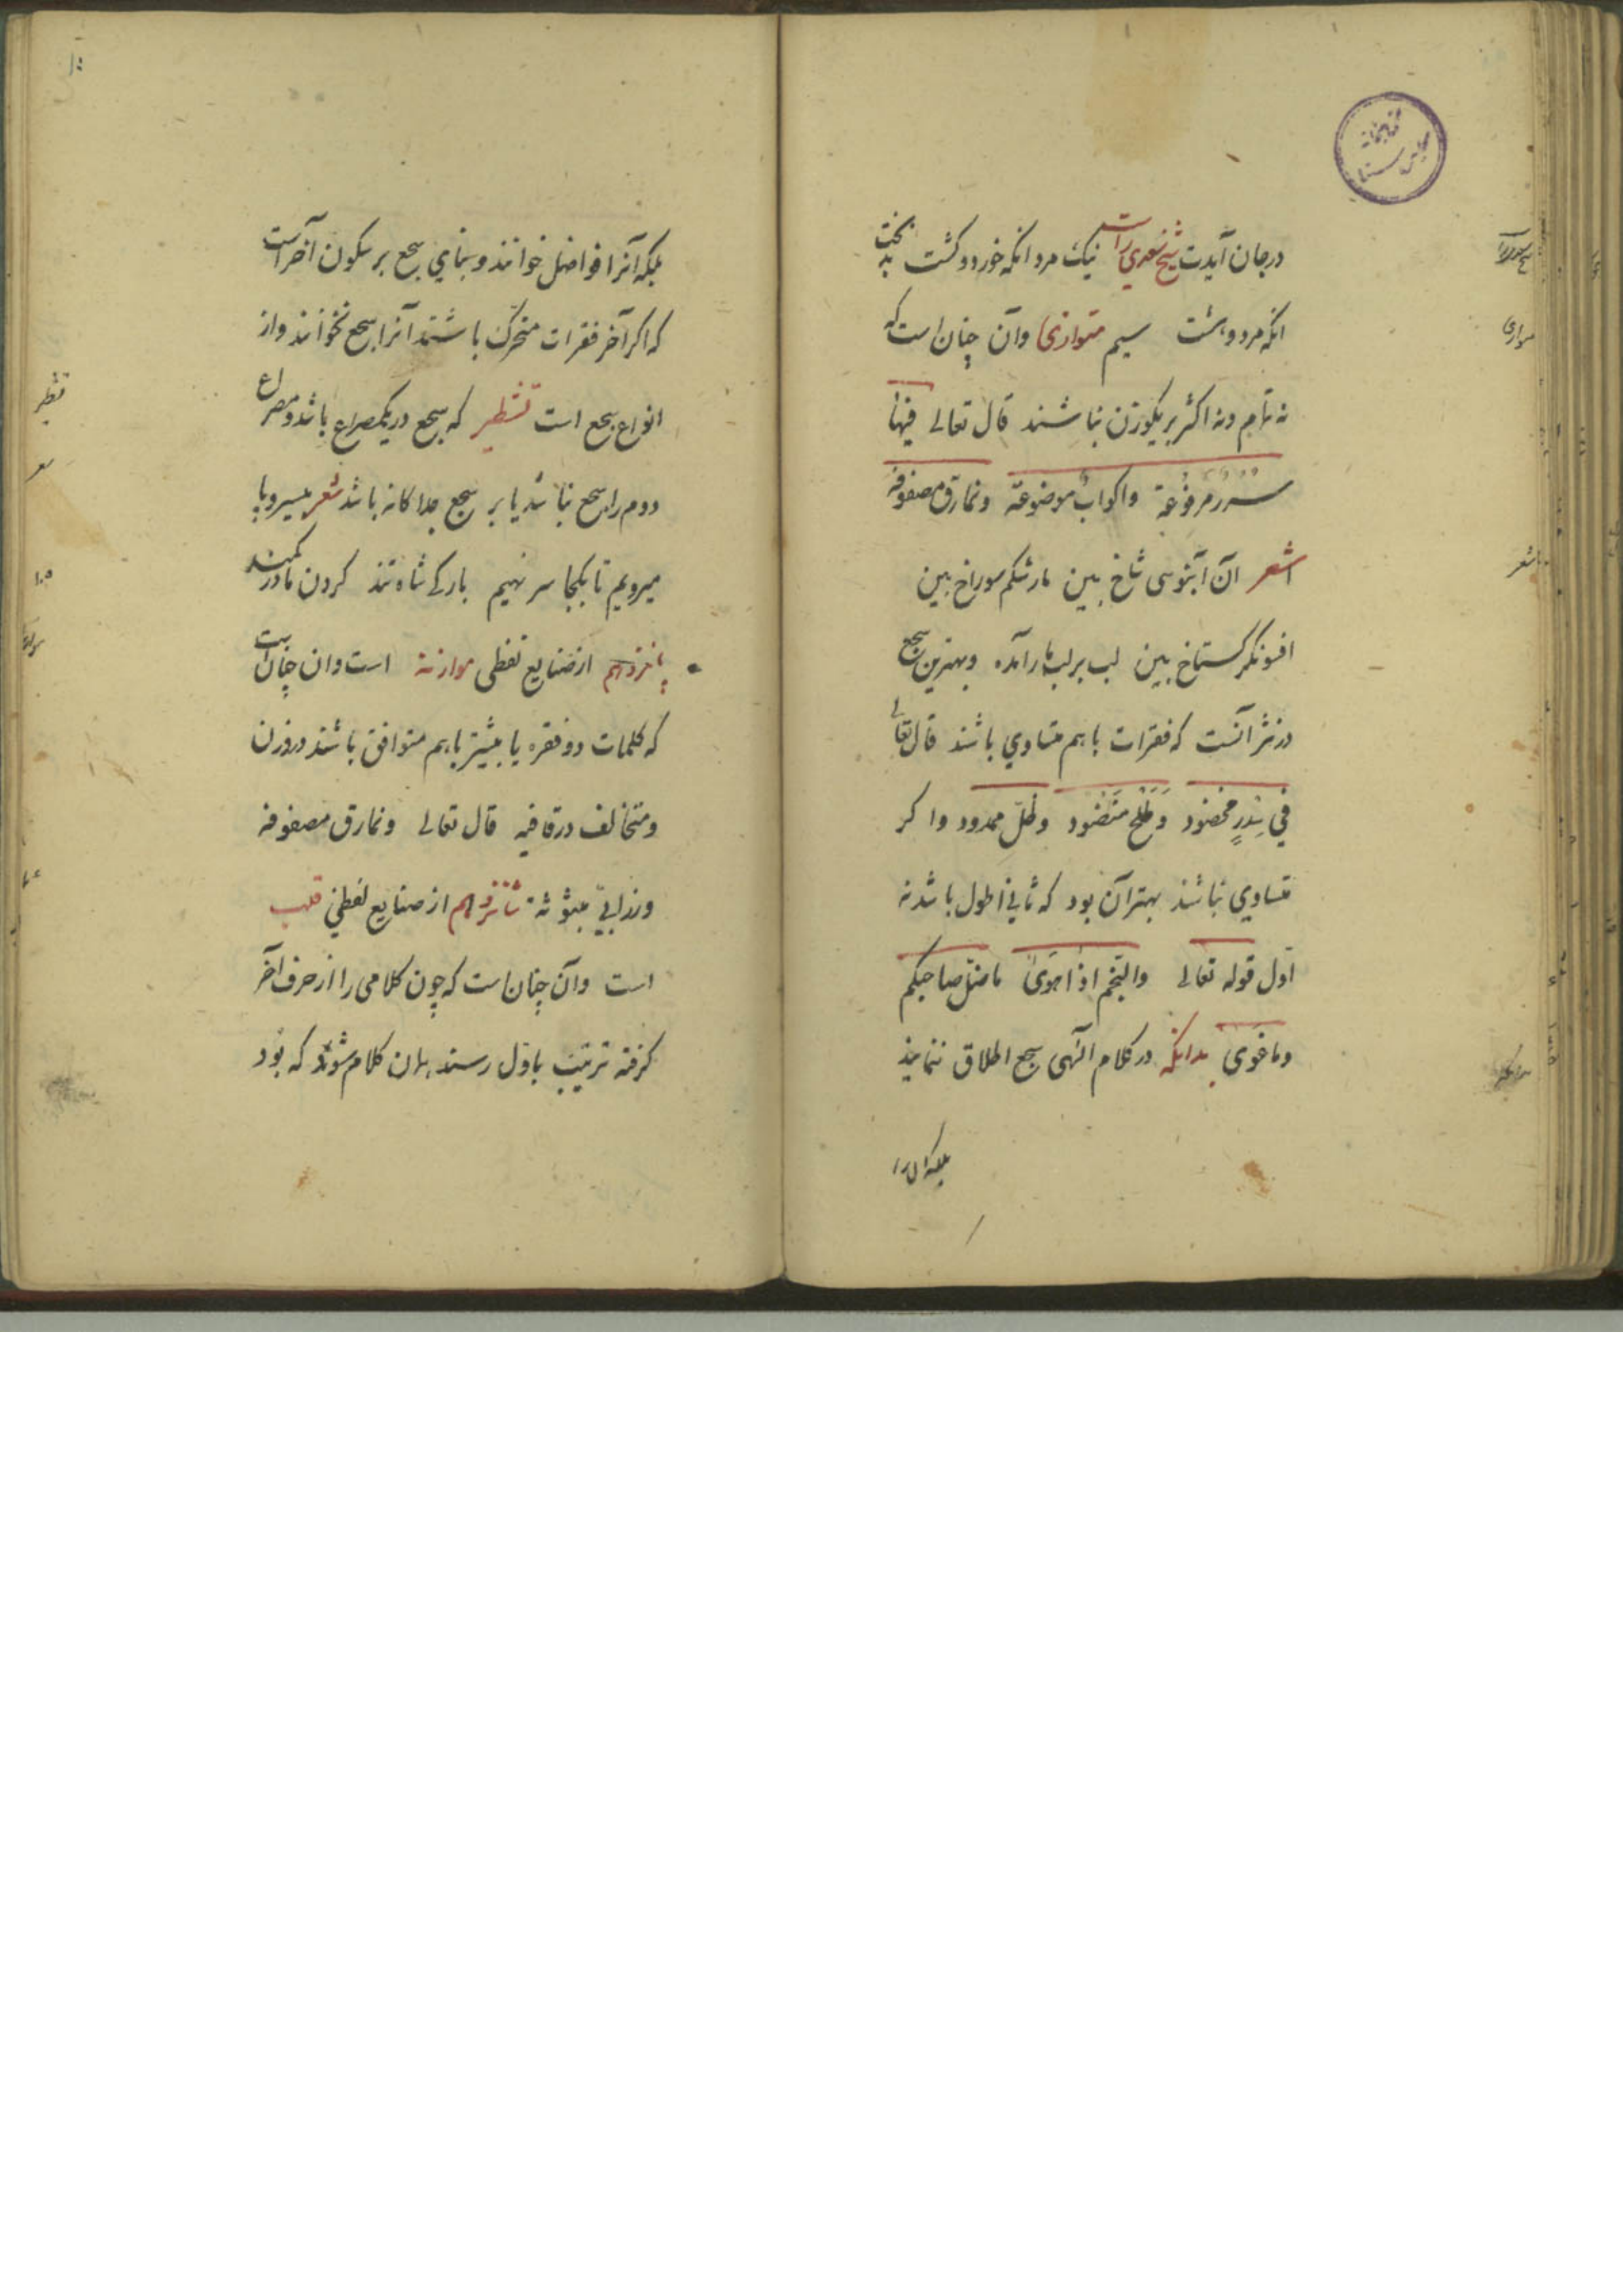 در جان آیدت شیخ سعدی راست نیک مرد انکه خورد و کشت بدبخت
انکه مرد و هشت سیم متوازی و آن چنان است که
نه تمام و نه اکثر بر یکوزن نباشند قال تعالی فیها
سرر مرفوعة و اکواب موضوعة و نمارق مصفوفه
شعر آن آبنوسی شاخ بین مار شکم سوراخ بین
افسونکر کستاخ بین لب بر لب یار آمده و بهترین سجع
در نثر آنست که فقرات باهم متساوی باشند قال تعالی
فی سِدرٍ مخضود وَ طَلْحٍ مَنضود و ظلّ ممدود و اکر
متساوی نباشند بهتر آن بود که ثانی اطول باشد نه
اول قوله تعالی والنجم اذا هوی ما ضلّ صاحبکم
و ما غوی بدانکه در کلام الهی سجع اطلاق ننمایند
بلکه انرا
شعر
بلکه آنرا فواصل خوانند و بنای سجع بر سکون آخر است
که اکر آخر فقرات متحرّک باشند آنرا سجع نخوانند و از
انواع سجع است تشطیر که سجع در یکمصراع باشد و مصراع
دوم را سجع نباشد یا بر سجع جداکانه باشد شعر بیسر و پا
میرویم تا بکجا سر نهیم بارکی شاه تند کردن ما در کمند
پانزدهم از صنایع لفظی موازنه است و ان چنان است
که کلمات دو فقره یا بیشتر باهم متوافق باشند در وزن
و متخالف در قافیه قال تعالی و نمارق مصفوفه
و زرابیّ مبثوثه شانزدهم از صنایع لفظی قلب
است و آن چنان است که چون کلامی را از حرف آخر
کرفته ترتیب باوّل رسند همان کلام شود که بود